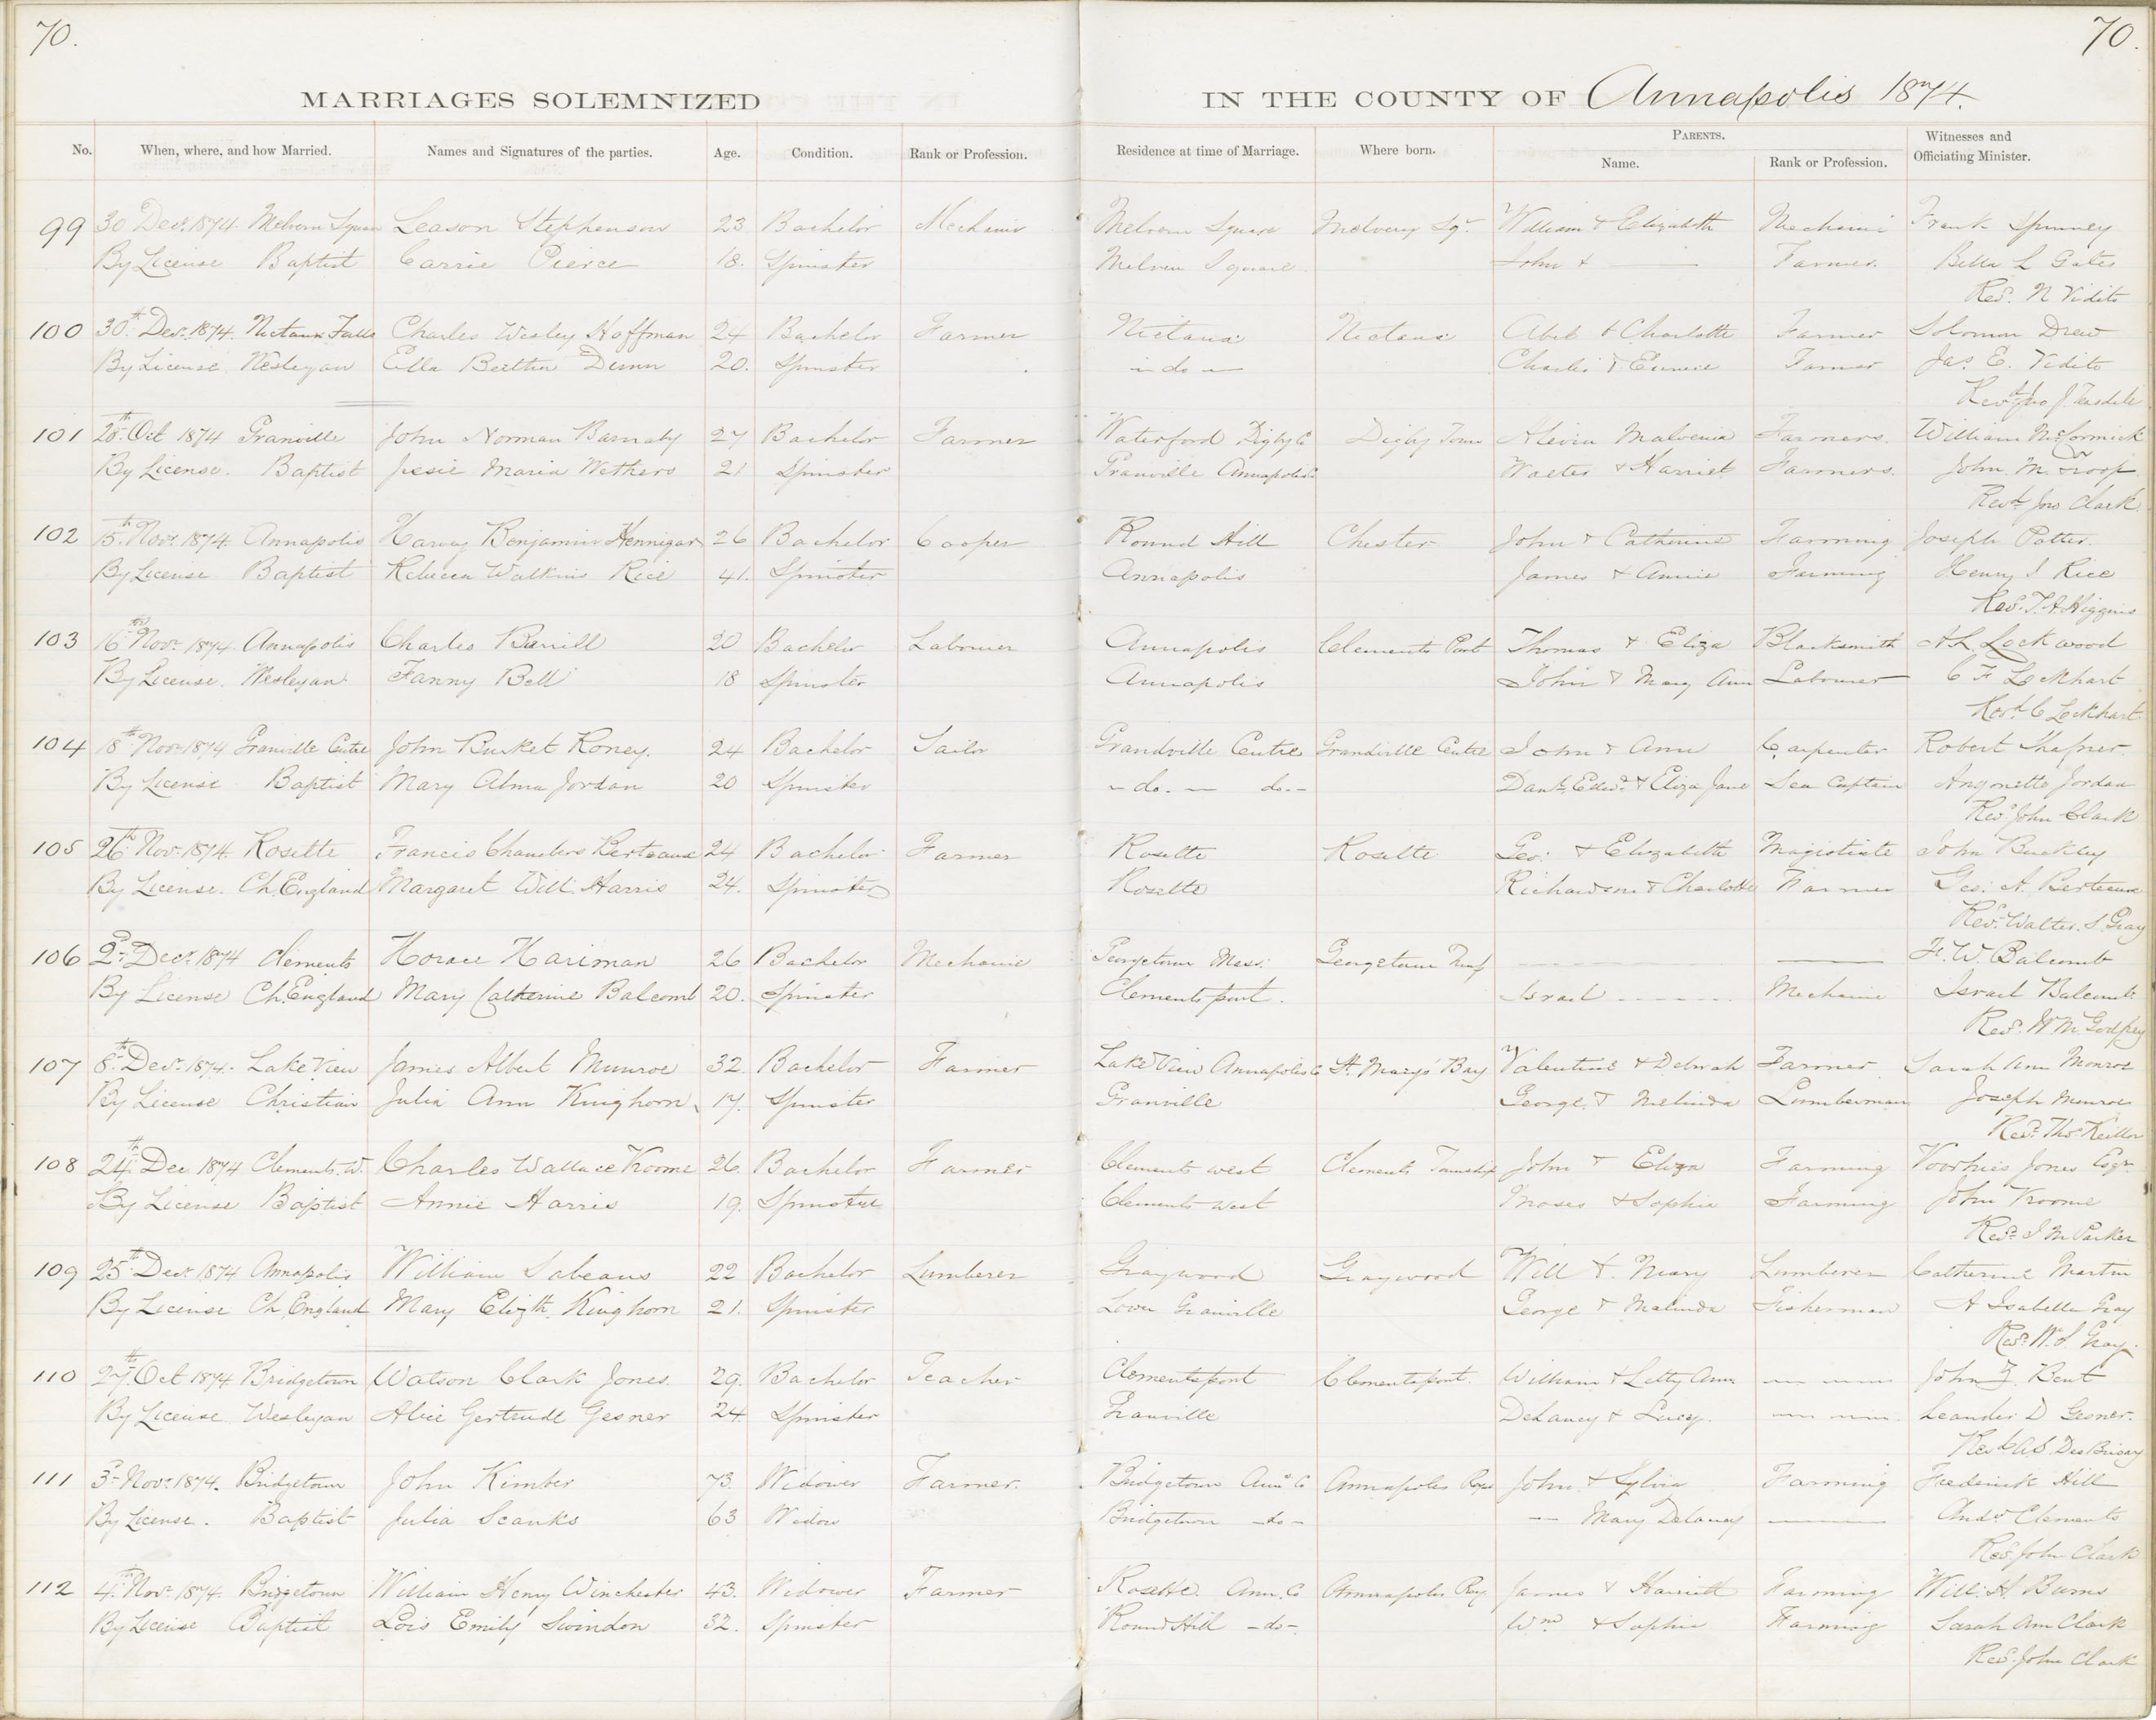 70. 70.
MARRIAGES SOLEMNIZED IN THE COUNTY OF Annapolis 1874.
No. When, where, and how Married. Names and Signatures of the parties. Age. Condition. Rank or Profession. Residence at time of Marriage. Where born. PARENTS. Name. Rank or Profession. Witnesses and Officiating Minister.
99 30 Decr. 1874 Melvern Square Leason Stephenson 23 Bachelor Mechanic Melvern Square Melvern Sqr. William & Elizabeth Mechanic Frank Spinney
By License Baptist Carrie Pierce 18. Spinster Melvern Square John & — Farmer. Bella L Gates
Revd. N Vidito
100 30th Decr. 1874. Nictaux Falls Charles Wesley Hoffman 24 Bachelor Farmer Nictaux Nictaux Abel & Charlotte Farmer Solomon Drew
By License Wesleyan Ella Bertha Dunn 20. Spinster — do — Charles & Eunice Farmer Jas. E. Vidito
Revd Jno J. Teasdale
101 28th Oct 1874 Granville John Norman Barnaby 27 Bachelor Farmer Waterford Digby Co Digby Town Malvenia Farmers. William McCormick
By License. Baptist Jessie Maria Wethers 21 Spinster Granville Annapolis Co Walter & Harriet Farmers. John M. Troop
Revd Jno Clark
102 15th Novr. 1874. Annapolis Harvey Benjamin Hennigar 26 Bachelor Cooper Round Hill Chester John & Catherine Farming Joseph Potter.
By License Baptist Rebecca Watkins Rice 41. Spinster Annapolis James & Annie Farming Henry S Rice
Revd. T. A Higgins
103 16th Novr. 1874. Annapolis Charles Barrill 20 Bachelor Labourer Annapolis Clements Port Thomas & Eliza Blacksmith A L Lockwood
By License. Wesleyan Fanny Bell 18 Spinster Annapolis John & Mary Ann Labourer C F Lockhart
Revd. C Lockhart
104 18th Novr 1874 Granville Centre John Burket Roney. 24 Bachelor Sailor Grandville Centre Grandville Centre John & Ann Carpenter Robert Shafner.
By License Baptist Mary Alma Jordan 20 Spinster — do. — do. — Danl. Edwd. & Eliza Jane Sea Captain Jordan
Revd John Clark
105 26th Novr. 1874. Rosette Francis Chambers Berteaux 24 Bachelor Farmer Rosette Rosette Geo: & Elizabeth Magistrate John Buckley
By License. Ch. England Margaret Will Harris 24. Spinster Rosette Richardson & Charlotte Farmer Geo: A. Berteaux
Revd. Walter. S. Gray
106 2d Decr. 1874 Clements Horace Hariman 26 Bachelor Mechanic Georgetown Mass. Georgetown — — F. W. Balcomb
By License Ch. England Mary Catherine Balcomb 20. Spinster Clementsport. Israel - - - - Mechanic Israel Balcomb.
Revd. W M Godfrey
107 8th Decr. 1874. Lake View James Albert Munroe 32 Bachelor Farmer Lake View Annapolis Co St. Marys Bay Valentine & Deborah Farmer Sarah Ann Monroe
By License Christian Julia Ann Kinghorn 17. Spinster Granville George & Melinda Lumberman Joseph Munroe
Revd. Thos. Keillor
108 24th Dec 1874 Clements. W. Charles Wallace Vroome 26. Bachelor Farmer Clements west Clements Township John & Eliza Farming Voorhies Jones Esqr.
By License Baptist Annie Harris 19. Spinster Clements west Moses & Sophia Farming John Vroome
Revd. J M Parker
109 25th Decr 1874 Annapolis William Sabeans 22 Bachelor Lumberer Graywood Graywood Will & Mary Lumberer Catherine Martin
By License Ch England Mary Elizth. Kinghorn 21. Spinster Lower Granville George & Malinda Fisherman A Isabella Gray
Revd. W. S. Gray.
110 27th Oct 1874 Bridgetown Watson Clark Jones. 29. Bachelor Teacher Clementsport Clementsport. William & Letty Ann — — John Z. Bent
By License. Wesleyan Alice Gertrude Gesner 24 Spinster Granville Delancy & Lucy. — — Leander D Gesner.
Rev C A S. Des Brisay
111 3d Novr. 1874. Bridgetown John Kimber 73. Widower Farmer. Bridgetown Anns. Co Annapolis Royal John & Sylvia Farming Frederick Hill
By License. Baptist Julia Scanks 63 Widow Bridgetown — do — — Mary Delaney — Andw. Clements
Revd. John Clark
112 4th Novr. 1874. Bridgetown William Henry Winchester 43. Widower Farmer Rosette. Ann. Co Annapolis Roy. James & Harriett Farming Will. H. Burns
By License Baptist Lois Emily Swindon 32. Spinster Round Hill — do —. Wm & Sophia Farming Sarah Ann Clark
Revd. John Clark